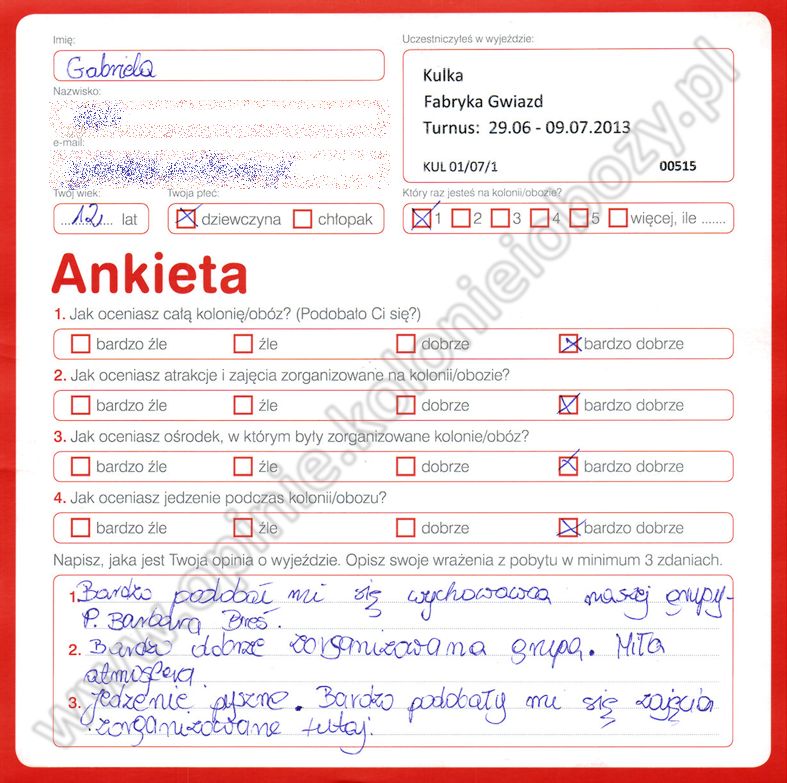 Imię:
Gabriela
Nazwisko:
e-mail:
Twój wiek:
12 lat
Twoja płeć:
dziewczyna chłopak
Uczestniczyłeś w wyjeździe:
Kulka
Fabryka Gwiazd
Turnus: 29.06 - 09.07.2013
KUL 01/07/1 00515
Który raz jesteś na kolonii/obozie?
1 2 3 4 5 więcej, ile .......
Ankieta
1. Jak oceniasz całą kolonię/obóz? (Podobało Ci się?)
bardzo źle źle dobrze bardzo dobrze
2. Jak oceniasz atrakcje i zajęcia zorganizowane na kolonii/obozie?
bardzo źle źle dobrze bardzo dobrze
3. Jak oceniasz ośrodek, w którym były zorganizowane kolonie/obóz?
bardzo źle źle dobrze bardzo dobrze
4. Jak oceniasz jedzenie podczas kolonii/obozu?
bardzo źle źle dobrze bardzo dobrze
Napisz, jaka jest Twoja opinia o wyjeździe. Opisz swoje wrażenia z pobytu w minimum 3 zdaniach.
1. Bardzo podobał mi się wychowawca naszej grupy-
P. Barbara
2. Bardzo dobrze zorganizowana grupa. Miła
atmosfera
3. Jedzenie pyszne. Bardzo podobały mi się zajęcia
zorganizowane tutaj.
www.opinie.kolonieiobozy.pl